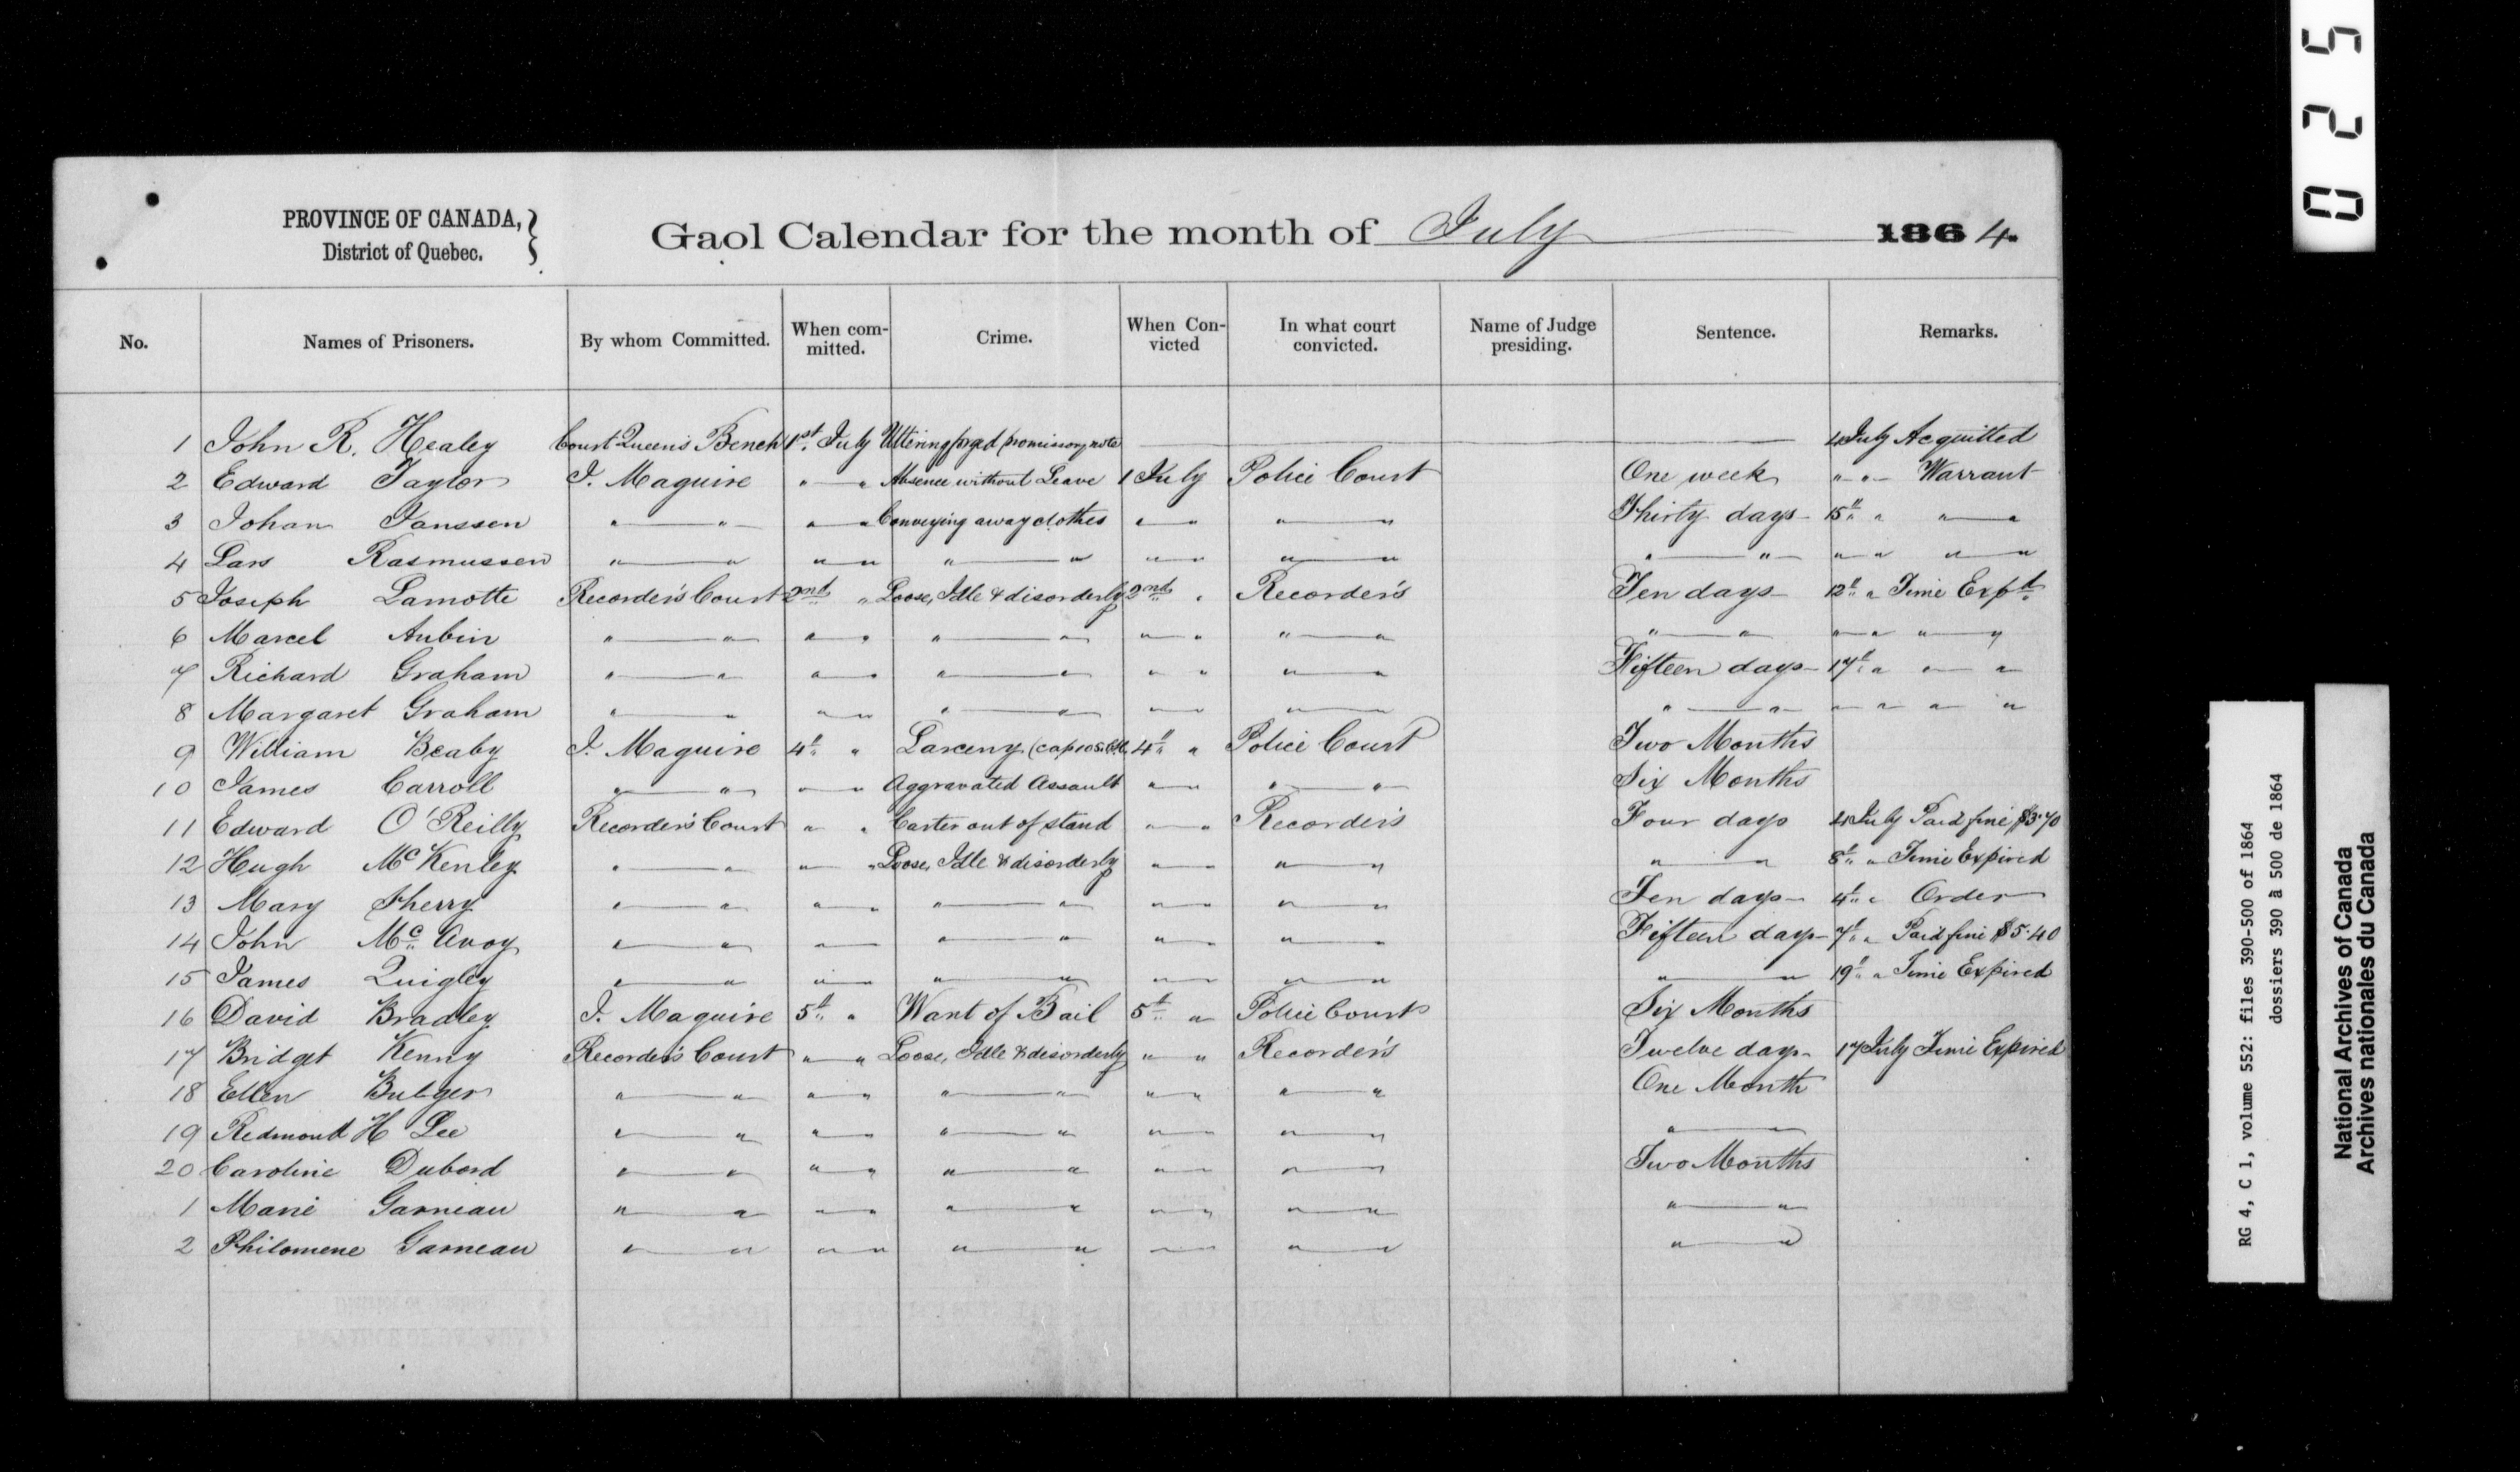 PROVINCE OF CANADA,
District of Quebec.
Gaol Calendar for the month of July 1864.
No. Names of Prisoners. By whom Committed. When committed. Crime. When Convicted In what court convicted. Name of Judge presiding. Sentence. Remarks.
1 John R. Healey Court Queen's Bench 1st July Uttering forged promissory note — 4 July Acquitted
2 Edward Taylor J. Maguire " — " Absence without Leave 1 July Police Court One week " " — Warrant
3 Johan Janssen " — " " — " Conveying away clothes " — " " — " Thirty days 15th " " — "
4 Lars Rasmussen " — " " — " " — " " — " " — " " — " " — " " — "
5 Joseph Lamotte Recorder's Court 2nd " Loose, Idle & disorderly 2nd " Recorder's Ten days 12th " Time Expd
6 Marcel Aubin " — " " — " " — " " — " " — " " — " " — " " — "
7 Richard Graham " — " " — " " — " " — " " — " Fifteen days 17th " " — "
8 Margaret Graham " — " " — " " — " " — " " — " " — " " — " " "
9 William Beaby J. Maguire 4th " Larceny (cap 105 4th " Police Court Two Months
10 James Carroll " — " " — " Aggravated Assault " — " " — " Six Months
11 Edward O'Reilly Recorder's Court " " Carter out of stand " — " Recorder's Four days 4 July Paid fine $3.70
12 Hugh McKenley " — " " — " Loose, Idle & disorderly " — " " — " " — " 8th " Time Expired
13 Mary Sherry " — " " — " " — " " — " " — " Ten days 4th " Order
14 John McAvoy " — " " — " " — " " — " " — " Fifteen days 7th " Paid fine $5.40
15 James Quigley " — " " — " " — " " — " " — " " — " 19th " Time Expired
16 David Bradley J. Maguire 5th " Want of Bail 5th " Police Court Six Months
17 Bridget Kenny Recorder's Court " — " Loose, Idle & disorderly " " Recorder's Twelve days 17 July Time Expired
18 Ellen Bulger " — " " — " " — " " — " " — " One Month
19 Redmond H Lee " — " " — " " — " " — " " — " " — "
20 Caroline Dubord " — " " — " " — " " — " " — " Two Months
1 Marie Garneau " — " " — " " — " " — " " — " " — "
2 Philomene Garneau " — " " — " " — " " — " " — " " — "
025
RG 4, C 1, volume 552: files 390-500 of 1864
dossiers 390 à 500 de 1864
National Archives of Canada
Archives nationales du Canada